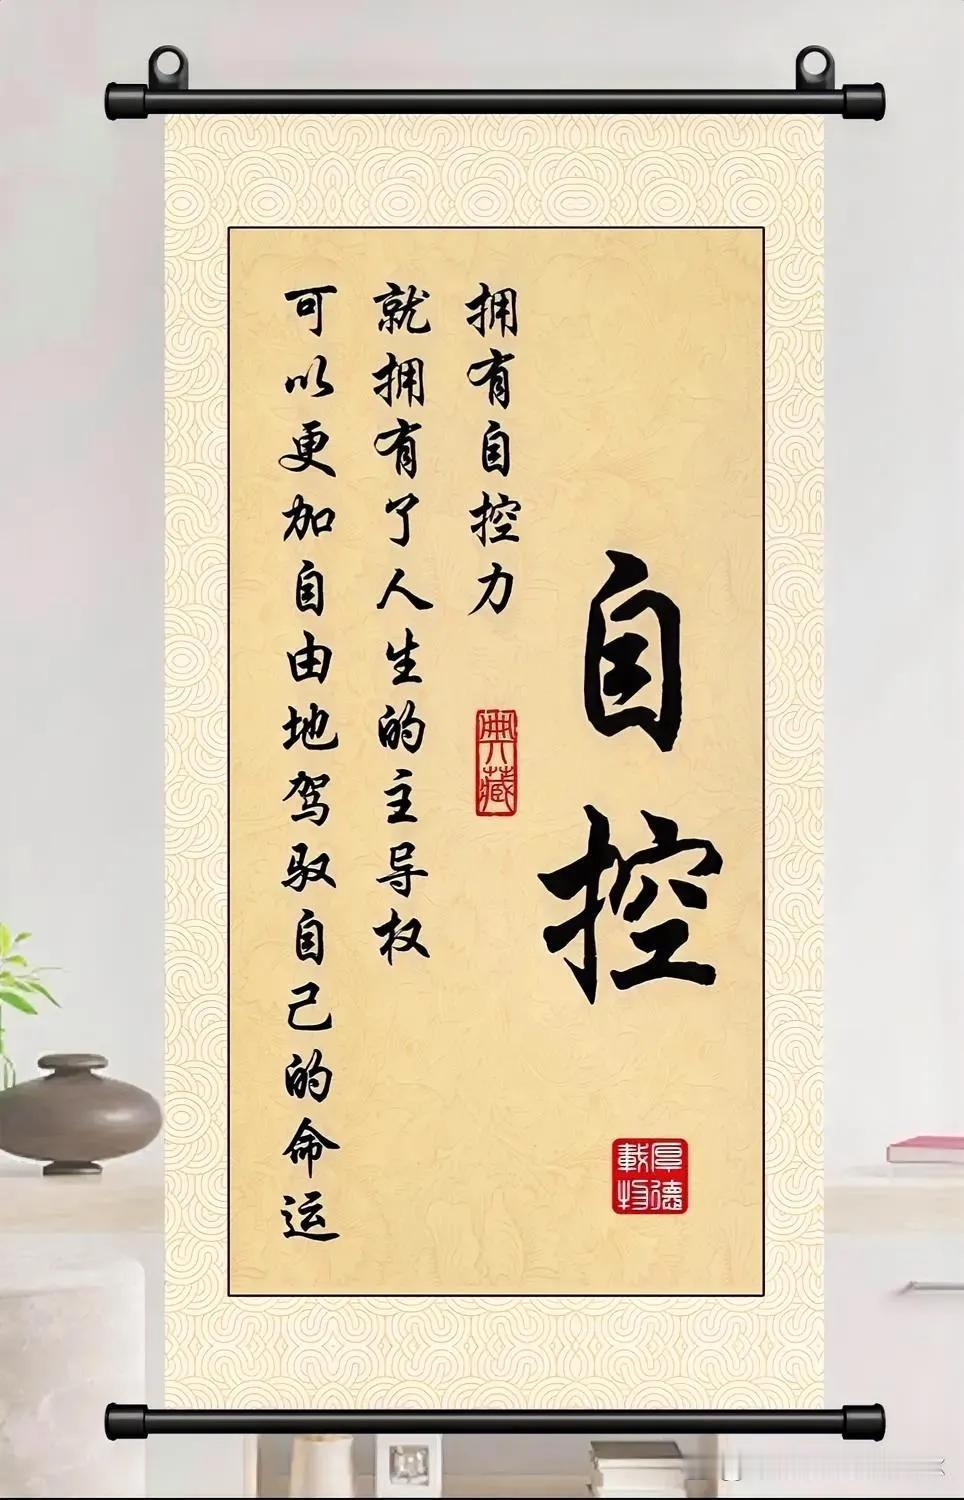 自控
厚德載物
拥有自控力
典藏
就拥有了人生的主导权
可以更加自由地驾驭自己的命运